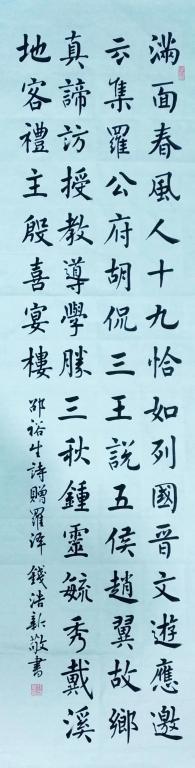 滿面春風人十九恰如列國晉文遊應邀
云集羅公府胡侃三王說五侯趙翼故鄉
真諦訪授教導學勝三秋鍾靈毓秀戴溪
地客禮主殷喜宴樓
邵裕生詩贈羅 錢浩新敬書